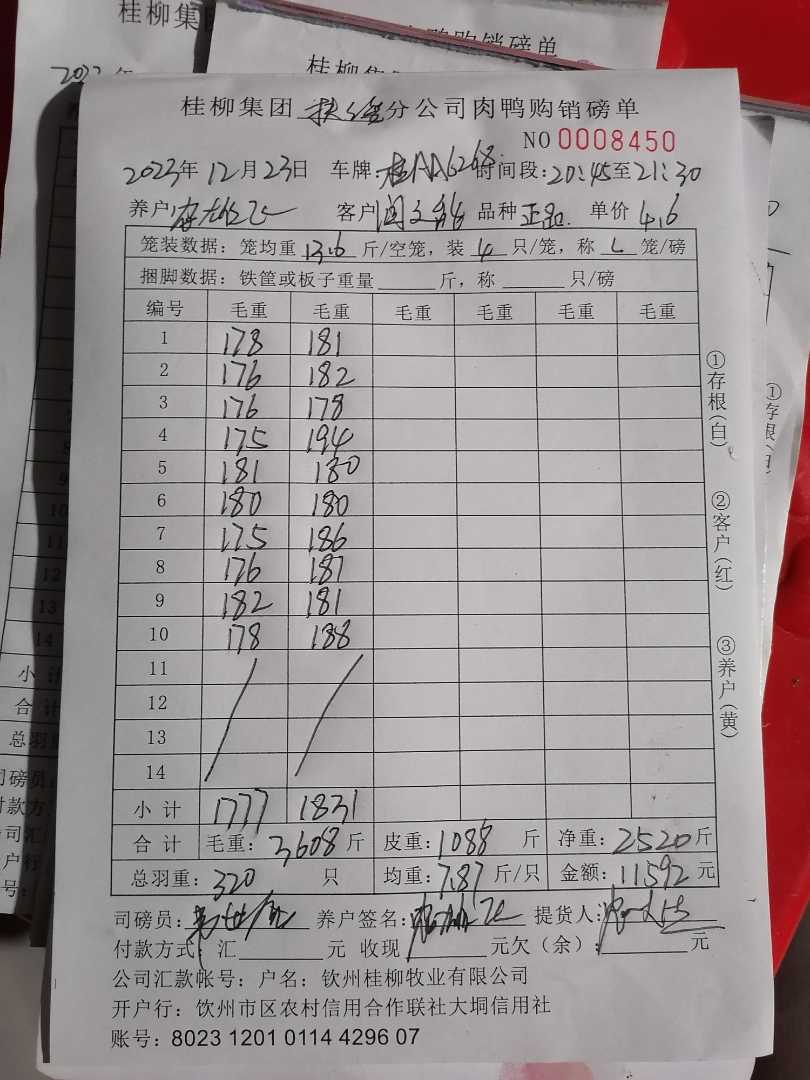 桂柳集团扶绥分公司肉鸭购销磅单
NO 0008450
2023年12月23日 车牌:桂AA6268 时间段:20:45至21:30
养户 客户 闫文能 品种 正品 单价 4.6
笼装数据:笼均重 13.6 斤/空笼,装 4 只/笼,称 4 笼/磅
捆脚数据:铁筐或板子重量 斤,称 只/磅
编号 毛重 毛重 毛重 毛重 毛重 毛重
1 178 181
2 176 182
3 176 178
4 175 194
5 181 180
6 180 180
7 175 186
8 176 181
9 182 181
10 178 188
11
12
13
14
小计 1777 1831
合计 毛重:3608斤 皮重:1088斤 净重:2520斤
总羽重:320只 均重:7.87斤/只 金额:11592元
司磅员: 养户签名: 提货人:
付款方式:汇 元 收现 元欠(余): 元
公司汇款帐号:户名:钦州桂柳牧业有限公司
开户行:钦州市区农村信用合作联社大垌信用社
账号:8023 1201 0114 4296 07
①存根(白)
②客户(红)
③养户(黄)